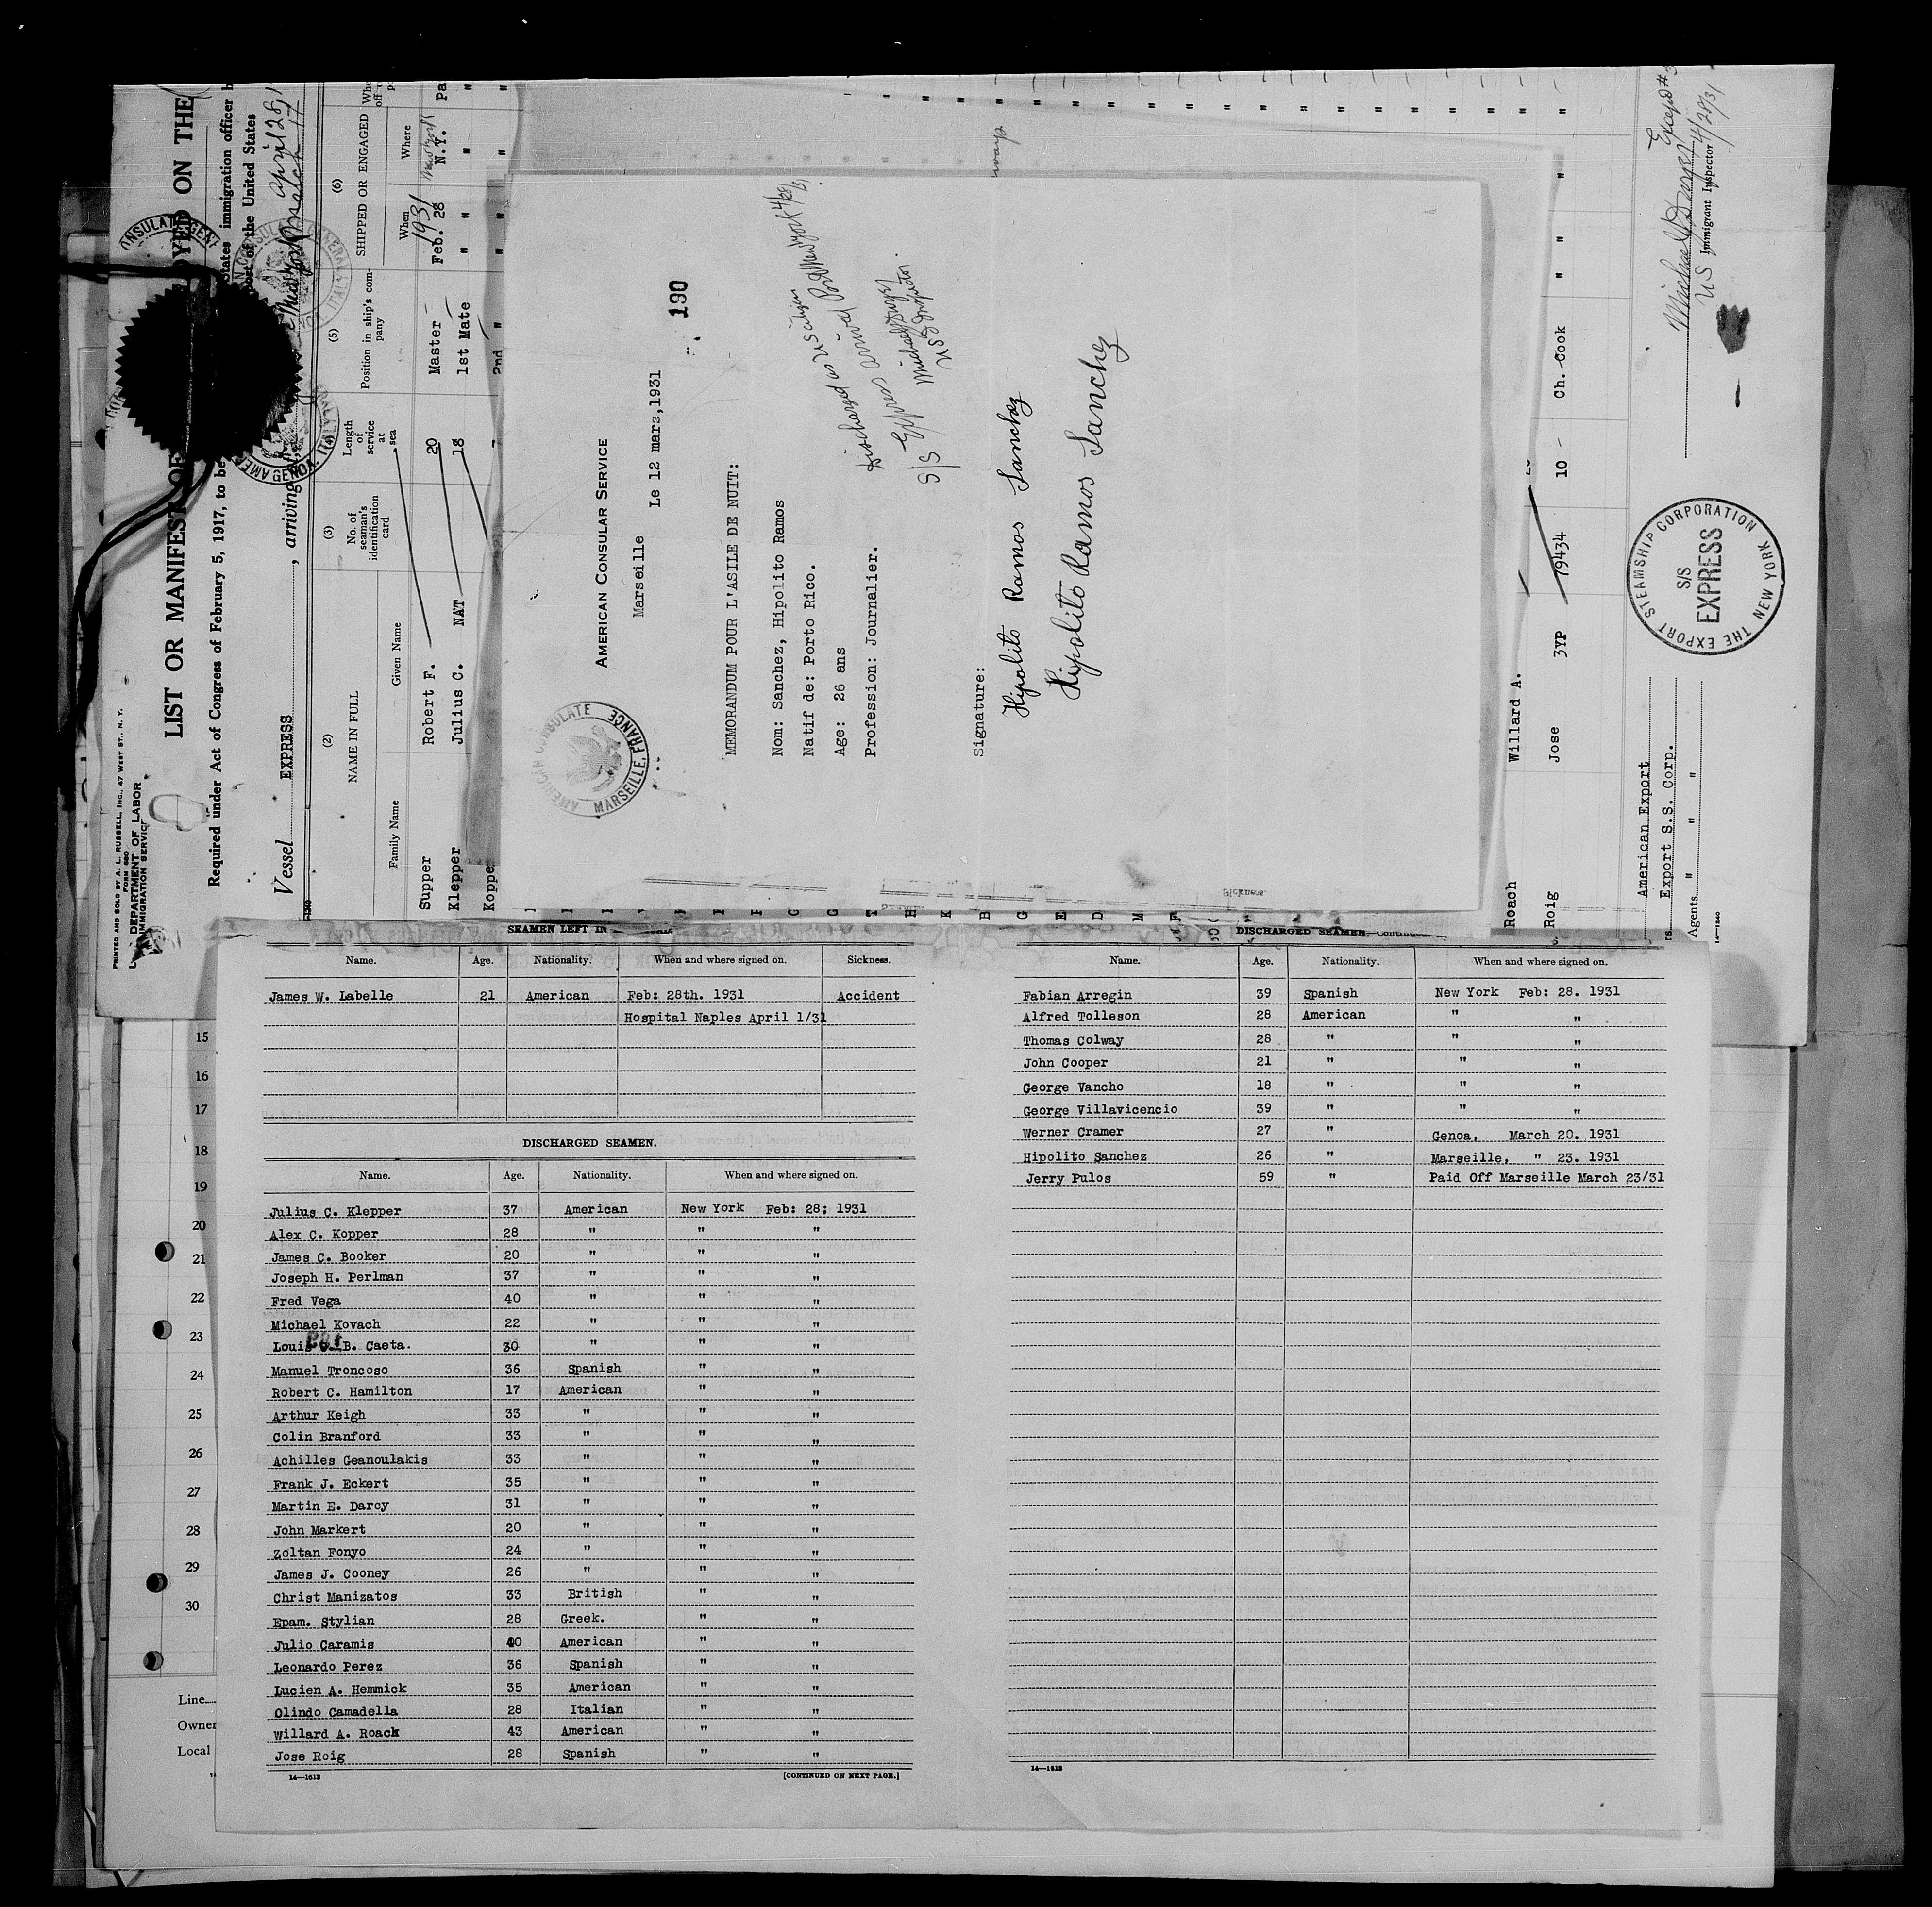 PRINTED AND SOLD BY A. L. RUSSELL, INC., 47 WEST ST., N. Y.
FORM 680
DEPARTMENT OF LABOR
IMMIGRATION SERVICE
LIST OR MANIFEST OF
OYED ON THE
Required under Act of Congress of February 5, 1917, to be
States immigration officer
of the United States
Vessel EXPRESS, arriving
April 28, 1
(2)
NAME IN FULL
Family Name Given Name
(3)
No. of seaman's identification card
(4)
Length of service at sea
(5)
Position in ship's company
(6)
SHIPPED OR ENGAGED
When Where
1931
Supper Robert F. 20 Master Feb. 28 N.Y.
Klepper Julius C. NAT 18 1st Mate " "
Koppe 2nd " " "
AMERICAN CONSULAR SERVICE
190
Marseille Le 12 mars,1931
AMERICAN CONSULATE
MARSEILLE, FRANCE
MEMORANDUM POUR L'ASILE DE NUIT:
Nom: Sanchez, Hipolito Ramos
Natif de: Porto Rico.
Age: 26 ans
Profession: Journalier.
Discharged as US citizen
S/S Express arrival Port New York 4/28/31
US Inspector.
Signature:
Hipolito Ramos Sanchez
Hipolito Ramos Sanchez
Roach Willard A.
Roig Jose 3YP 79434 10 Ch. Cook " "
American Export
Export S.S. Corp.
Agents " " "
14—1240
THE EXPORT STEAMSHIP CORPORATION
S/S
EXPRESS
NEW YORK
US Immigrant Inspector
4/28/31
SEAMEN LEFT IN
Name. Age. Nationality. When and where signed on. Sickness.
James W. Labelle 21 American Feb: 28th. 1931 Accident
Hospital Naples April 1/31
DISCHARGED SEAMEN.
Name. Age. Nationality. When and where signed on.
Julius C. Klepper 37 American New York Feb: 28; 1931
Alex C. Kopper 28 " " "
James C. Booker 20 " " "
Joseph H. Perlman 37 " " "
Fred Vega 40 " " "
Michael Kovach 22 " " "
Louis B. Caeta. 30 " " "
Manuel Troncoso 36 Spanish " "
Robert C. Hamilton 17 American " "
Arthur Keigh 33 " " "
Colin Branford 33 " " "
Achilles Geanoulakis 33 " " "
Frank J. Eckert 35 " " "
Martin E. Darcy 31 " " "
John Markert 20 " " "
Zoltan Fonyo 24 " " "
James J. Cooney 26 " " "
Christ Manizatos 33 British " "
Epam. Stylian 28 Greek. " "
Julio Caramis 40 American " "
Leonardo Perez 36 Spanish " "
Lucien A. Hemmick 35 American " "
Olindo Camadella 28 Italian " "
Willard A. Roack 43 American " "
Jose Roig 28 Spanish " "
14—1613 [CONTINUED ON NEXT PAGE.]
DISCHARGED SEAMEN—Continued
Name. Age. Nationality. When and where signed on.
Fabian Arregin 39 Spanish New York Feb: 28. 1931
Alfred Tolleson 28 American " "
Thomas Colway 28 " " "
John Cooper 21 " " "
George Vancho 18 " " "
George Villavicencio 39 " " "
Werner Cramer 27 " Genoa, March 20. 1931
Hipolito Sanchez 26 " Marseille, " 23. 1931
Jerry Pulos 59 " Paid Off Marseille March 23/31
14—1613
15
16
17
18
19
20
21
22
23
24
25
26
27
28
29
30
Line
Owner
Local